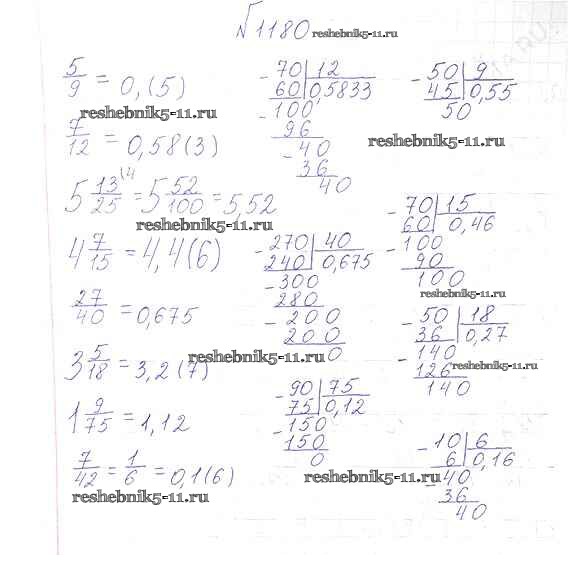 √1180 reshebnik5-11.ru
5/9 = 0,(5)
reshebnik5-11.ru
7/12 = 0,58(3)
5 13/25 \4 = 5 52/100 = 5,52
reshebnik5-11.ru
4 7/15 = 4,4(6)
27/40 = 0,675
3 5/18 = 3,2(7)
reshebnik5-11.ru
1 9/75 = 1,12
7/42 = 1/6 = 0,1(6)
reshebnik5-11.ru
- 70 | 12
60 | 0,5833
- 100
96
- 40
36
40
- 270 | 40
240 | 0,675
- 300
280
- 200
200
0
- 90 | 75
75 | 0,12
- 150
150
0
reshebnik5-11.ru
- 50 | 9
45 | 0,55
50
reshebnik5-11.ru
- 70 | 15
60 | 0,46
- 100
90
100
reshebnik5-11.ru
- 50 | 18
36 | 0,27
- 140
126
140
reshebnik5-11.ru
- 10 | 6
6 | 0,16
- 40
36
40